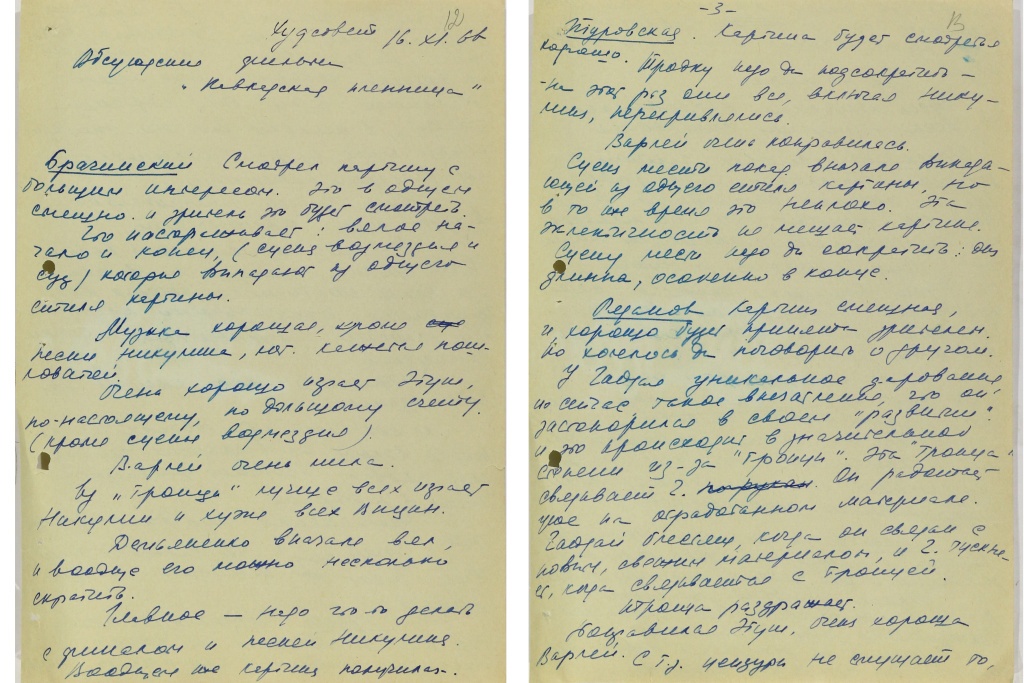 12
Худсовет 16.XI.66
Обсуждение фильма
"Кавказская пленница"
Брагинский Смотрел картину с
большим интересом. Это в общем
смешно. и зритель это будет смотреть.
Что настораживает: вялое на-
чало и конец, (сцена возмездия и
суд) которые выпадают из общего
стиля картины.
Музыка хорошая, кроме
песни Никулина, кот. кажется пош-
ловатой.
Очень хорошо играет Этуш,
по-настоящему, по большому счету.
(кроме сцены возмездия).
Варлей очень мила.
Из "Троицы" лучше всех играет
Никулин и хуже всех Вицин.
Демьяненко вначале вял,
и вообще его можно несколько
скратить.
Главное – надо что-то делать
с финалом и песней Никулина.
Вообще же картина получилась.
-3-
13
Туровская. Картина будет смотреться
хорошо.
Тройку надо бы подсократить –
на этот раз они все, включая Нику-
лина, перекривлялись.
Варлей очень понравилась.
Сцена мести показ. вначале выпада-
ющей из общего стиля картины, но
в то же время это неплохо. Эта
эклектичность не мешает картине.
Сцену мести надо бы сократить: она
длинна, особенно в конце.
Рязанов Картина смешная,
и хорошо будет принята зрителем.
Но хотелось бы поговорить о другом.
У Гайдая уникальное дарование,
но сейчас такое впечатление, что он
застопорился в своем "развитии".
и это происходит в значительной
степени из-за "Троицы". Эта "Троица"
связывает Г. по рукам. Он работает
уже на отработанном материале.
Гайдай блестящ, когда он связан с
новым, свежим материалом, и Г. тускне-
ет, когда связывается с Троицей.
И Троица раздражает.
Понравился Этуш, очень хороша
Варлей. С т.з. цензуры не смущает то,